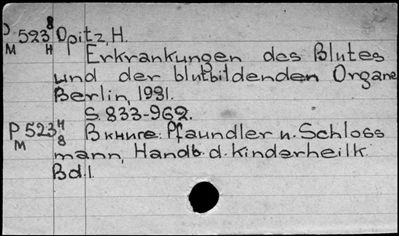 523 8 Opitz, H.
M H Erkrankungen des Blutes
und der blutbildenden Organe
Berlin, 1931.
S. 833-962.
P 523 H В книге: Pfaundler и. Schloss
M 8 mann, Handb. d. Kinderheilk.
Bd. I.